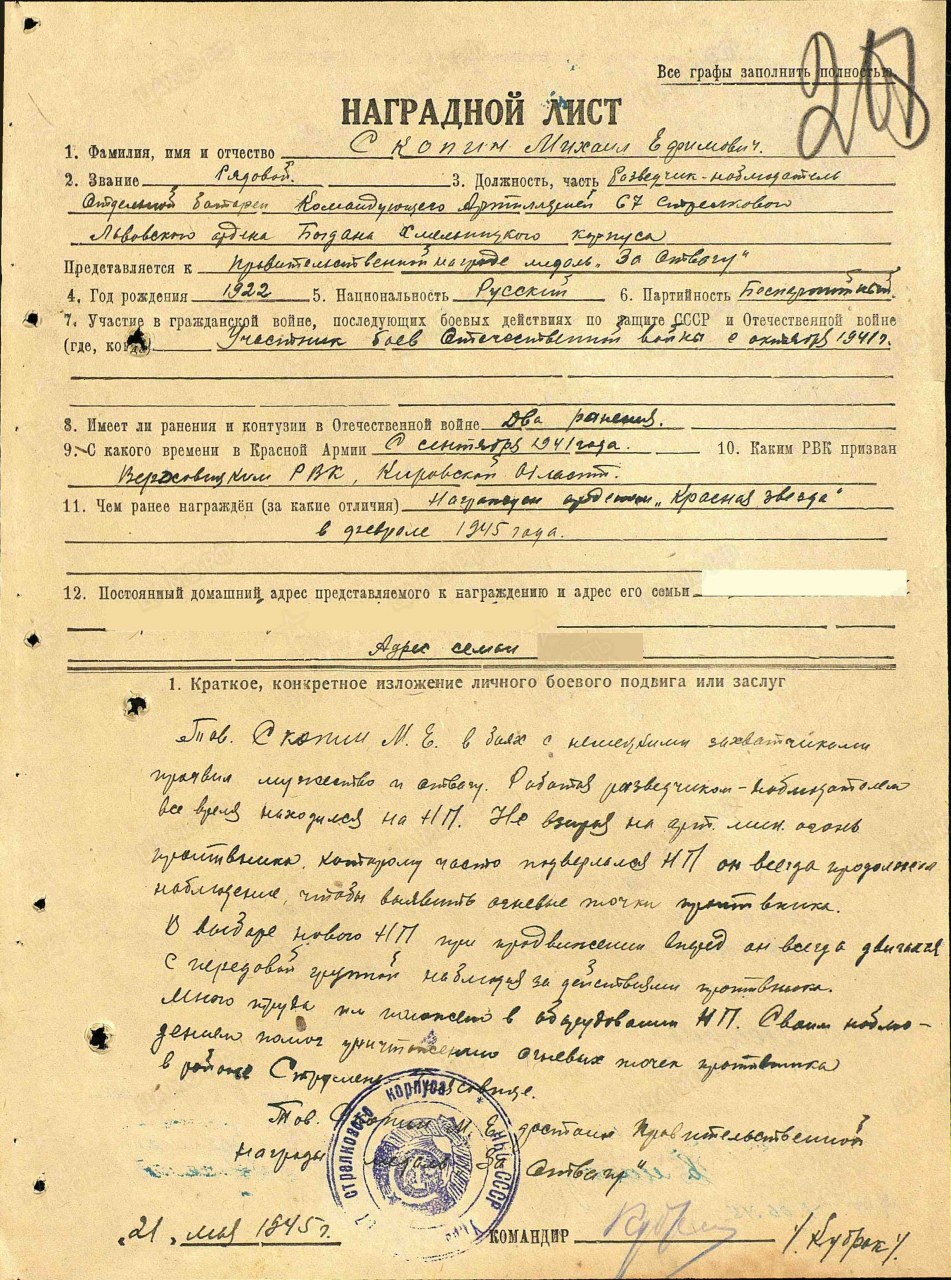 Все графы заполнить полностью.
НАГРАДНОЙ ЛИСТ
1. Фамилия, имя и отчество Скопин Михаил Ефимович.
2. Звание Рядовой. 3. Должность, часть Разведчик-наблюдатель
Отдельной батареи Командующего Артиллерией 67 Стрелкового
Львовского ордена Богдана Хмельницкого корпуса
Представляется к правительственной награде медаль „За Отвагу"
4. Год рождения 1922 5. Национальность Русский 6. Партийность Беспартийный.
7. Участие в гражданской войне, последующих боевых действиях по защите СССР и Отечественной войне
(где, когда) Участник боев Отечественной войны с октября 1941 г.
8. Имеет ли ранения и контузии в Отечественной войне Два ранения.
9. С какого времени в Красной Армии С сентября 1941 года. 10. Каким РВК призван
РВК, Кировской Област.
11. Чем ранее награждён (за какие отличия) Награжден орденом „Красная звезда"
в феврале 1945 года.
12. Постоянный домашний адрес представляемого к награждению и адрес его семьи
Адрес семьи
1. Краткое, конкретное изложение личного боевого подвига или заслуг
Тов. Скопин М. Е. в боях с немецкими захватчиками
проявил мужество и отвагу. Работая разведчиком-наблюдателем
все время находился на НП. Не взирая на арт. мин. огонь
противника, которому часто подвергался НП он всегда продолжал
наблюдение, чтобы выявить огневые точки противника.
В выборе нового НП при продвижении вперед он всегда двигался
с передовой группой наблюдая за действиями противника.
Много труда им положено в оборудовании НП. Своим наблю-
дением помог уничтожению огневых точек противника
в районе
Тов. Скопин М. Е. достоин Правительственной
награды медаль „За Отвагу"
стрелкового корпуса НКО СССР
„21" мая 1945 г. КОМАНДИР /Кубрак/.